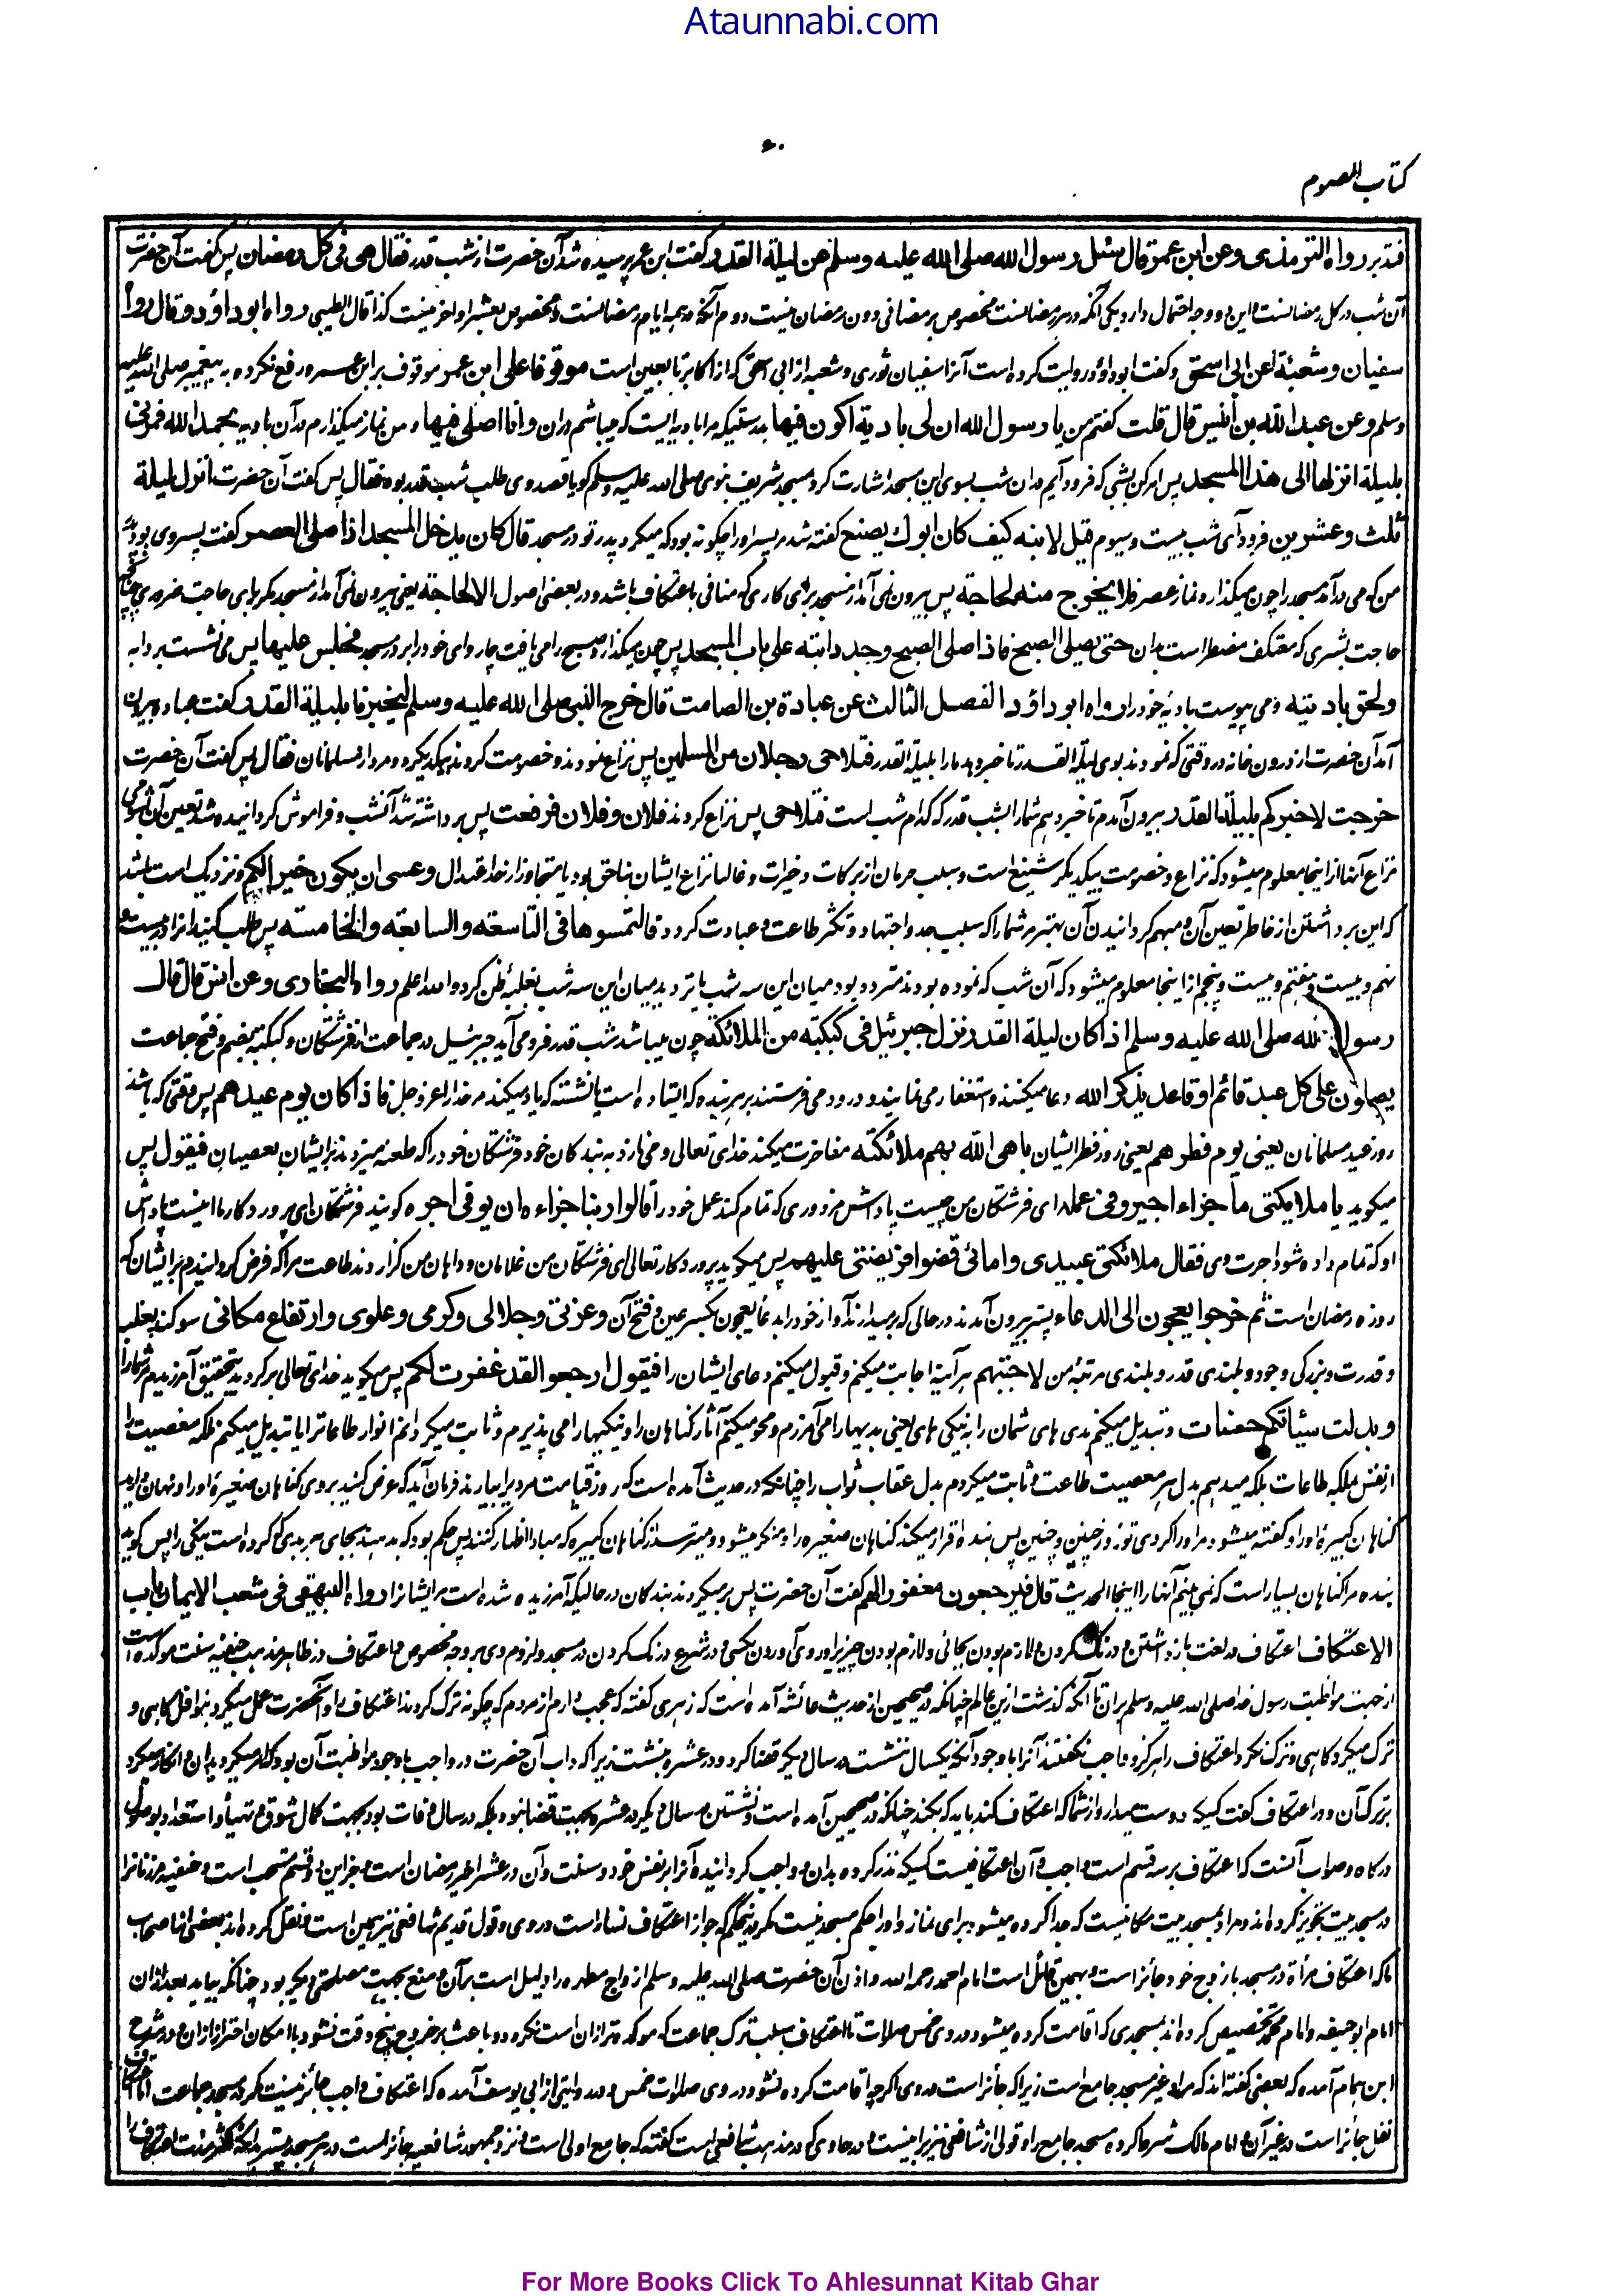 Ataunnabi.com
کتاب الصوم
فتدبر رواه الترمذی وعن ابن عمر قال سئل رسول الله صلی الله علیه وسلم عن لیلة القدر گفت ابن عمر پرسیده شد آن حضرت از شب قدر فقال هی فی کل رمضان پس گفت آن حضرت
آن شب در کل رمضانست و این دو وجه احتمال دارد یکی آنکه در هر رمضانست مخصوص برمضانی دون رمضان نیست دوم آنکه در همه ایام رمضانست مخصوص بعشر اواخر نیست کذا قال الطیبی رواه ابو داؤد و قال رواه
سفیان و شعبة عن ابی اسحق و گفت ابوداؤد روایت کرده است آنرا سفیان ثوری و شعبه از ابی اسحق که از اکابر تابعین است موقوفا علی ابن عمر موقوف بر ابن عمر و رفع نکرده به پیغمبر صلی الله علیه
وسلم وعن عبد الله بن انیس قال قلت گفتم من یا رسول الله ان لی بادیة اکون فیها بدرستیکه مرا بادیه ایست که میباشم دران و انا اصلی فیها و من نماز میگذارم در آن بادیه بحمد الله فمرنی
بلیلة انزلها الی هذا المسجد پس امر کن بشبی که فرود آیم دران شب بسوی این مسجد اشارت کرد مسجد شریف نبوی صلی الله علیه وسلم گویا قصد وی طلب شب قدر بود فقال پس گفت آن حضرت انزل لیلة
ثلث وعشرین فرود آی شب بیست و سیوم قیل لابنه کیف کان ابوک یصنع گفته شد مر پسر او را چگونه بود که میکرد پدر تو در مسجد قال کان یدخل المسجد اذا صلی العصر گفت پسر وی بود پدر
من که می درآمد مسجد را چون میگذارد نماز عصر فلا یخرج منه لحاجة پس بیرون نمی آمد از مسجد برای کاری که منافی باعتکاف باشد و در بعضی اصول الا لحاجة یعنی بیرون نمی آمد از مسجد مگر برای حاجت ضروری
حاجت بشری که معتکف مضطر است بدان حتی یصلی الصبح فاذا صلی الصبح وجد دابته علی باب المسجد پس چون میگذارد صبح را می یافت چاروای خود را بر در مسجد فجلس علیها پس می نشست بر دابه
ولحق بادیته و می پیوست بادیه خود را رواه ابو داؤد الفصل الثالث عن عبادة بن الصامت قال خرج النبی صلی الله علیه وسلم لیخبرنا بلیلة القدر گفت عباده بیرون
آمد آن حضرت از درون خانه در وقتی که نمودند بوی لیلة القدر تا خبر دهد ما را بلیلة القدر فتلاحی رجلان من المسلمین پس نزاع نمودند و خصومت کردند بیکدیگر دو مرد از مسلمانان فقال پس گفت آن حضرت
خرجت لاخبرکم بلیلة القدر بیرون آمدم تا خبر دهم شما را بشب قدر که کدام شب است فتلاحی پس نزاع کردند فلان و فلان فرفعت پس برداشته شد آنشب و فراموش گردانیده شد تعین آن
نزاع آنها ازینجا معلوم میشود که نزاع و خصومت بیکدیگر شنیع است و سبب حرمان از برکات و خیرات و غالبا نزاع ایشان بناحق بود یا متجاوز از حد اعتدال وعسی ان یکون خیرا لکم و نزدیک است باشد
که این برداشتن از خاطر تعین آن و مبهم گردانیدن آن بهتر مر شما را که سبب جد و اجتهاد و تکثر طاعت و عبادت گردد فالتمسوها فی التاسعة والسابعة والخامسة پس طلب کنید آنرا در بیست و
نهم و بیست و هفتم و بیست و پنجم ازینجا معلوم میشود که آن شب که نموده بودند متردد بود میان این سه شب یا تردید بمیان این سه شب بغلبه ظن کرد والله اعلم رواه البخاری وعن انس قال قال
رسول الله صلی الله علیه وسلم اذا کان لیلة القدر نزل جبرئیل فی کبکبة من الملائکة چون میباشد شب قدر فرو می آید جبرئیل در جماعت از فرشتگان و کبکبه بضم و فتح جماعت
یصلون علی کل عبد قائم او قاعد یذکر الله دعا میکنند و استغفار می نمایند و درود می فرستند بر هر بنده که ایستاده است یا نشسته که یاد میکند مر خدا را عز و جل فاذا کان یوم عیدهم پس وقتی که باشد
روز عید مسلمانان یعنی یوم فطرهم یعنی روز فطر ایشان باهی الله بهم ملائکته مفاخرت میکند خدای تعالی و می نازد به بندگان خود فرشتگان خود را که طعنه میزدند بر ایشان بعصیان فیقول پس
میگوید یا ملائکتی ما جزاء اجیر وفی عمله ای فرشتگان من چیست پاداش مزدوری که تمام کند عمل خود را قالوا ربنا جزاءه ان یوفی اجره گویند فرشتگان ای پروردگار ما اینست پاداش
او که تمام داده شود اجرت وی فقال ملائکتی عبیدی وامائی قضوا فریضتی علیهم پس میگوید پروردگار تعالی ای فرشتگان من غلامان و داهان من گزاردند طاعت مرا که فرض گردانیدم بر ایشان که
روزه رمضان است ثم خرجوا یعجون الی الدعاء پستر بیرون آمدند در حالی که برمیدارند آواز خود را بدعا یعجون بکسر عین و فتح آن وعزتی وجلالی وکرمی وعلوی وارتفاع مکانی سوگند بغلبه
و قدرت و بزرگی وجود و بلندی قدر و بلندی مرتبه من لاجیبنهم هر آینه اجابت میکنم و قبول میکنم دعای ایشان را فیقول ارجعوا لقد غفرت لکم پس میگوید خدای تعالی برگردید بتحقیق آمرزیدم شما را
وبدلت سیئاتکم حسنات و تبدیل میکنم بدی های شمان را به نیکی های یعنی بدیها را می آمرزم و محو میکنم آثار گناهان را و نیکیها را می پذیرم و ثابت میگردانم انوار طاعات را یا تبدیل میکنم ملکه معصیت را
از نفس بملکه طاعات بلکه میدهم بدل هر معصیت طاعت و ثابت میگردم بدل عقاب ثواب را چنانکه در حدیث آمده است که روز قیامت مردی را بیارند فرمان آید که عرض کنید بروی گناهان صغیره او را و نهان دارید
گناهان کبیره او را و گفته میشود مر او را کردی تو روز چنین و چنین پس بنده اقرار میکند گناهان صغیره را و منکر میشود و میترسد از گناهان کبیره که مبادا اظهار کنند پس حکم بود که بدهید بجای هر بدی که کرده است نیکی را پس گوید
بنده مرا گناهان بسیار است که نمی بینم آنها را اینجا الحدیث قال فیرجعون مغفورا لهم گفت آن حضرت پس بر میگردند بندگان در حالیکه آمرزیده شده است مر ایشانرا رواه البیهقی فی شعب الایمان باب
الاعتکاف اعتکاف در لغت بازداشتن و درنگ کردن و لازم بودن بجائی و لازم بودن چیزیرا و روی آوردن بکسی و در شرع درنگ کردن در مسجد و لزوم وی بر وجه مخصوص و اعتکاف در ظاهر مذهب حنفیه سنت موکده است
از جهت مواظبت رسول خدا صلی الله علیه وسلم بران تا آنکه گذشت ازین عالم چنانکه در صحیحین از حدیث عائشه آمده است که زهری گفته که عجب دارم از مردم که چگونه ترک کردند اعتکاف را و آنحضرت عمل میکرد بنوافل گاهی و
ترک میکرد گاهی و ترک نکرد اعتکاف را هرگز و واجب نگفتند آنرا با وجود آنکه یکسال ننشست در سال دیگر قضا کرد و در عشره بنشست زیرا که داب آن حضرت در واجب با وجود مواظبت آن بود که امر میکرد بدان و انکار میکرد
بترک آن و در اعتکاف گفت کسیکه دوست میدارد از شما که اعتکاف کند باید که بکند چنانکه در صحیحین آمده است و نشستن در سال دیگر دو عشره بجهت قضا نبود بلکه در سال وفات بود بجهت کمال شوق و تهیأ و استعداد بوصول
درگاه و صواب آنست که اعتکاف بر سه قسم است واجب و آن اعتکافیست کسیکه نذر کرده بدان و واجب گردانیده آنرا بر نفس خود و سنت و آن در عشر اخیر رمضان است و جز این دو قسم مستحب است و حنفیه مر زنانرا
در مسجد بیت تجویز کرده اند و مراد بمسجد بیت مکانیست که جدا کرده میشود برای نماز و او را حکم مسجد نیست مگر در حکم جواز اعتکاف نساء است در وی و قول قدیم شافعی نیز همین است و نقل کرده اند بعضی از اصحاب
ما که اعتکاف مرأة در مسجد با زوج خود جائز است و بهمین قائل است امام احمد رحمه الله و اذن آن حضرت صلی الله علیه وسلم ازواج مطهره را دلیل است بر آن و منع بجهت مصلحتی دیگر بود چنانکه بیاید بعد ازان
امام ابوحنیفه و امام محمد تخصیص کرده اند بمسجدی که اقامت کرده میشود در وی خمس صلات تا اعتکاف سبب ترک جماعت که موکد تر ازان است نگردد و باعث بر خروج پنج وقت نشود با امکان احتراز ازان و در شرح
ابن همام آمده که بعضی گفته اند که مراد غیر مسجد جامع است زیرا که جائز است در وی اگر چه اقامت کرده نشود در وی صلوات خمس و در روایتی از ابی یوسف آمده که اعتکاف واجب جائز نیست مگر در مسجد جماعت اما
نفل جائز است در غیر آن و امام مالک شرط کرده مسجد جامع را و قولی از شافعی نیز برینست و در حاوی که در مذهب شافعی است گفته که جامع اولی است و نزد جمهور شافعیه جائز است در هر مسجد
For More Books Click To Ahlesunnat Kitab Ghar